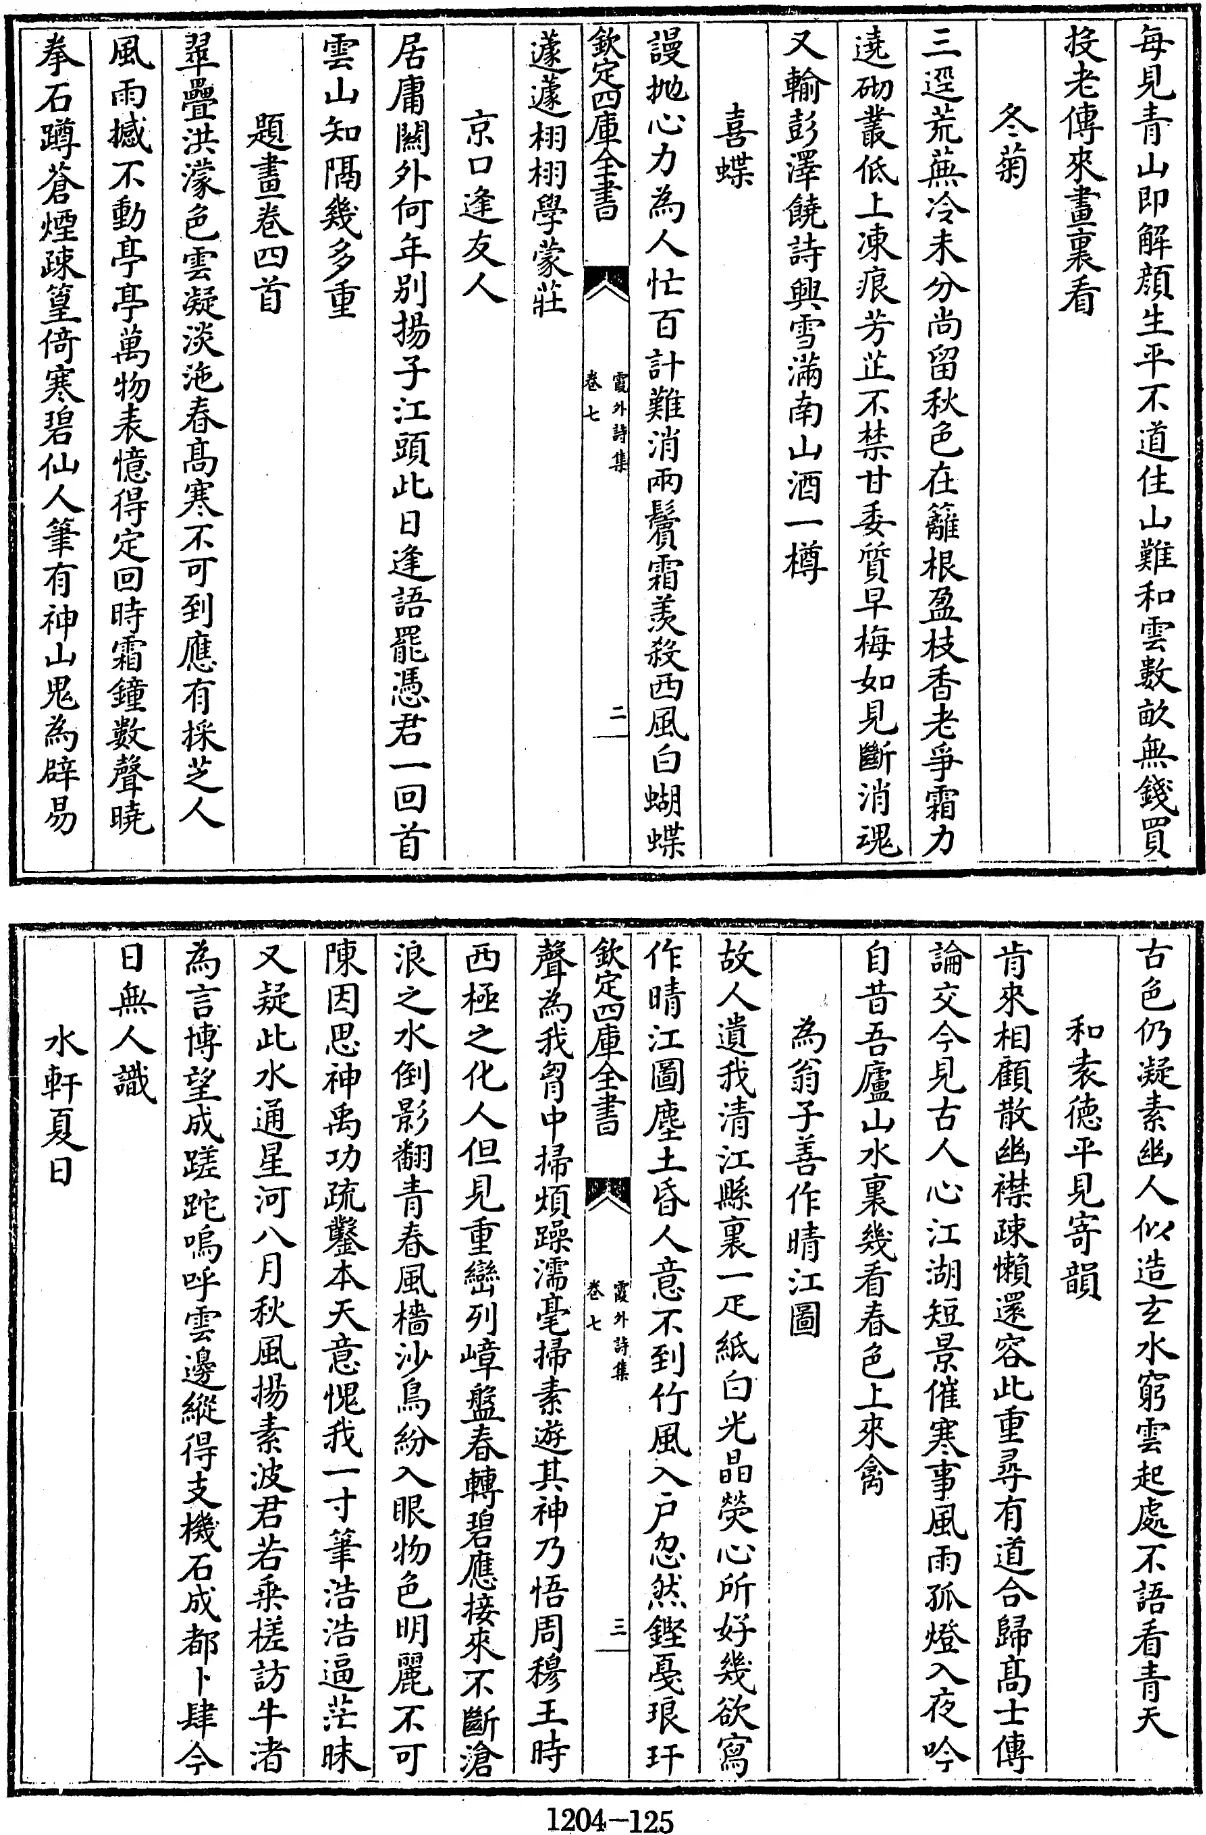 每見青山即解顔生平不道住山難和雲數畝無錢買
投老傳來畫裏看
冬菊
三逕荒蕪冷未分尚留秋色在籬根盈枝香老爭霜力
遶砌叢低上凍痕芳芷不禁甘委質早梅如見斷消魂
又輸彭澤饒詩興雪滿南山酒一樽
喜蝶
謾抛心力為人忙百計難消兩鬢霜羨殺西風白蝴蝶
欽定四庫全書
霞外詩集
卷七
二
蘧蘧栩栩學蒙莊
京口逢友人
居庸關外何年别揚子江頭此日逢語罷憑君一回首
雲山知隔幾多重
題畫卷四首
翠疊洪濛色雲凝淡沲春高寒不可到應有採芝人
風雨撼不動亭亭萬物表憶得定回時霜鐘數聲曉
拳石蹲蒼煙疎篁倚寒碧仙人筆有神山鬼為辟易
古色仍凝素幽人似造玄水窮雲起處不語看青天
和袁德平見寄韻
肯來相顧散幽襟疎懶還容此重尋有道合歸高士傳
論交今見古人心江湖短景催寒事風雨孤燈入夜吟
自昔吾廬山水裏幾看春色上來禽
為翁子善作晴江圖
故人遺我清江縣裏一疋紙白光晶熒心所好幾欲寫
作晴江圖塵土昏人意不到竹風入户忽然鏗戞琅玕
欽定四庫全書
霞外詩集
卷七
三
聲為我胷中掃煩躁濡毫掃素遊其神乃悟周穆王時
西極之化人但見重巒列嶂盤春轉碧應接來不斷滄
浪之水倒影翻青春風檣沙鳥紛入眼物色明麗不可
陳因思神禹功疏鑿本天意愧我一寸筆浩浩逼茫昧
又疑此水通星河八月秋風揚素波君若乘槎訪牛渚
為言博望成蹉跎嗚呼雲邊縱得支機石成都卜肆今
日無人識
水軒夏日
1204-125